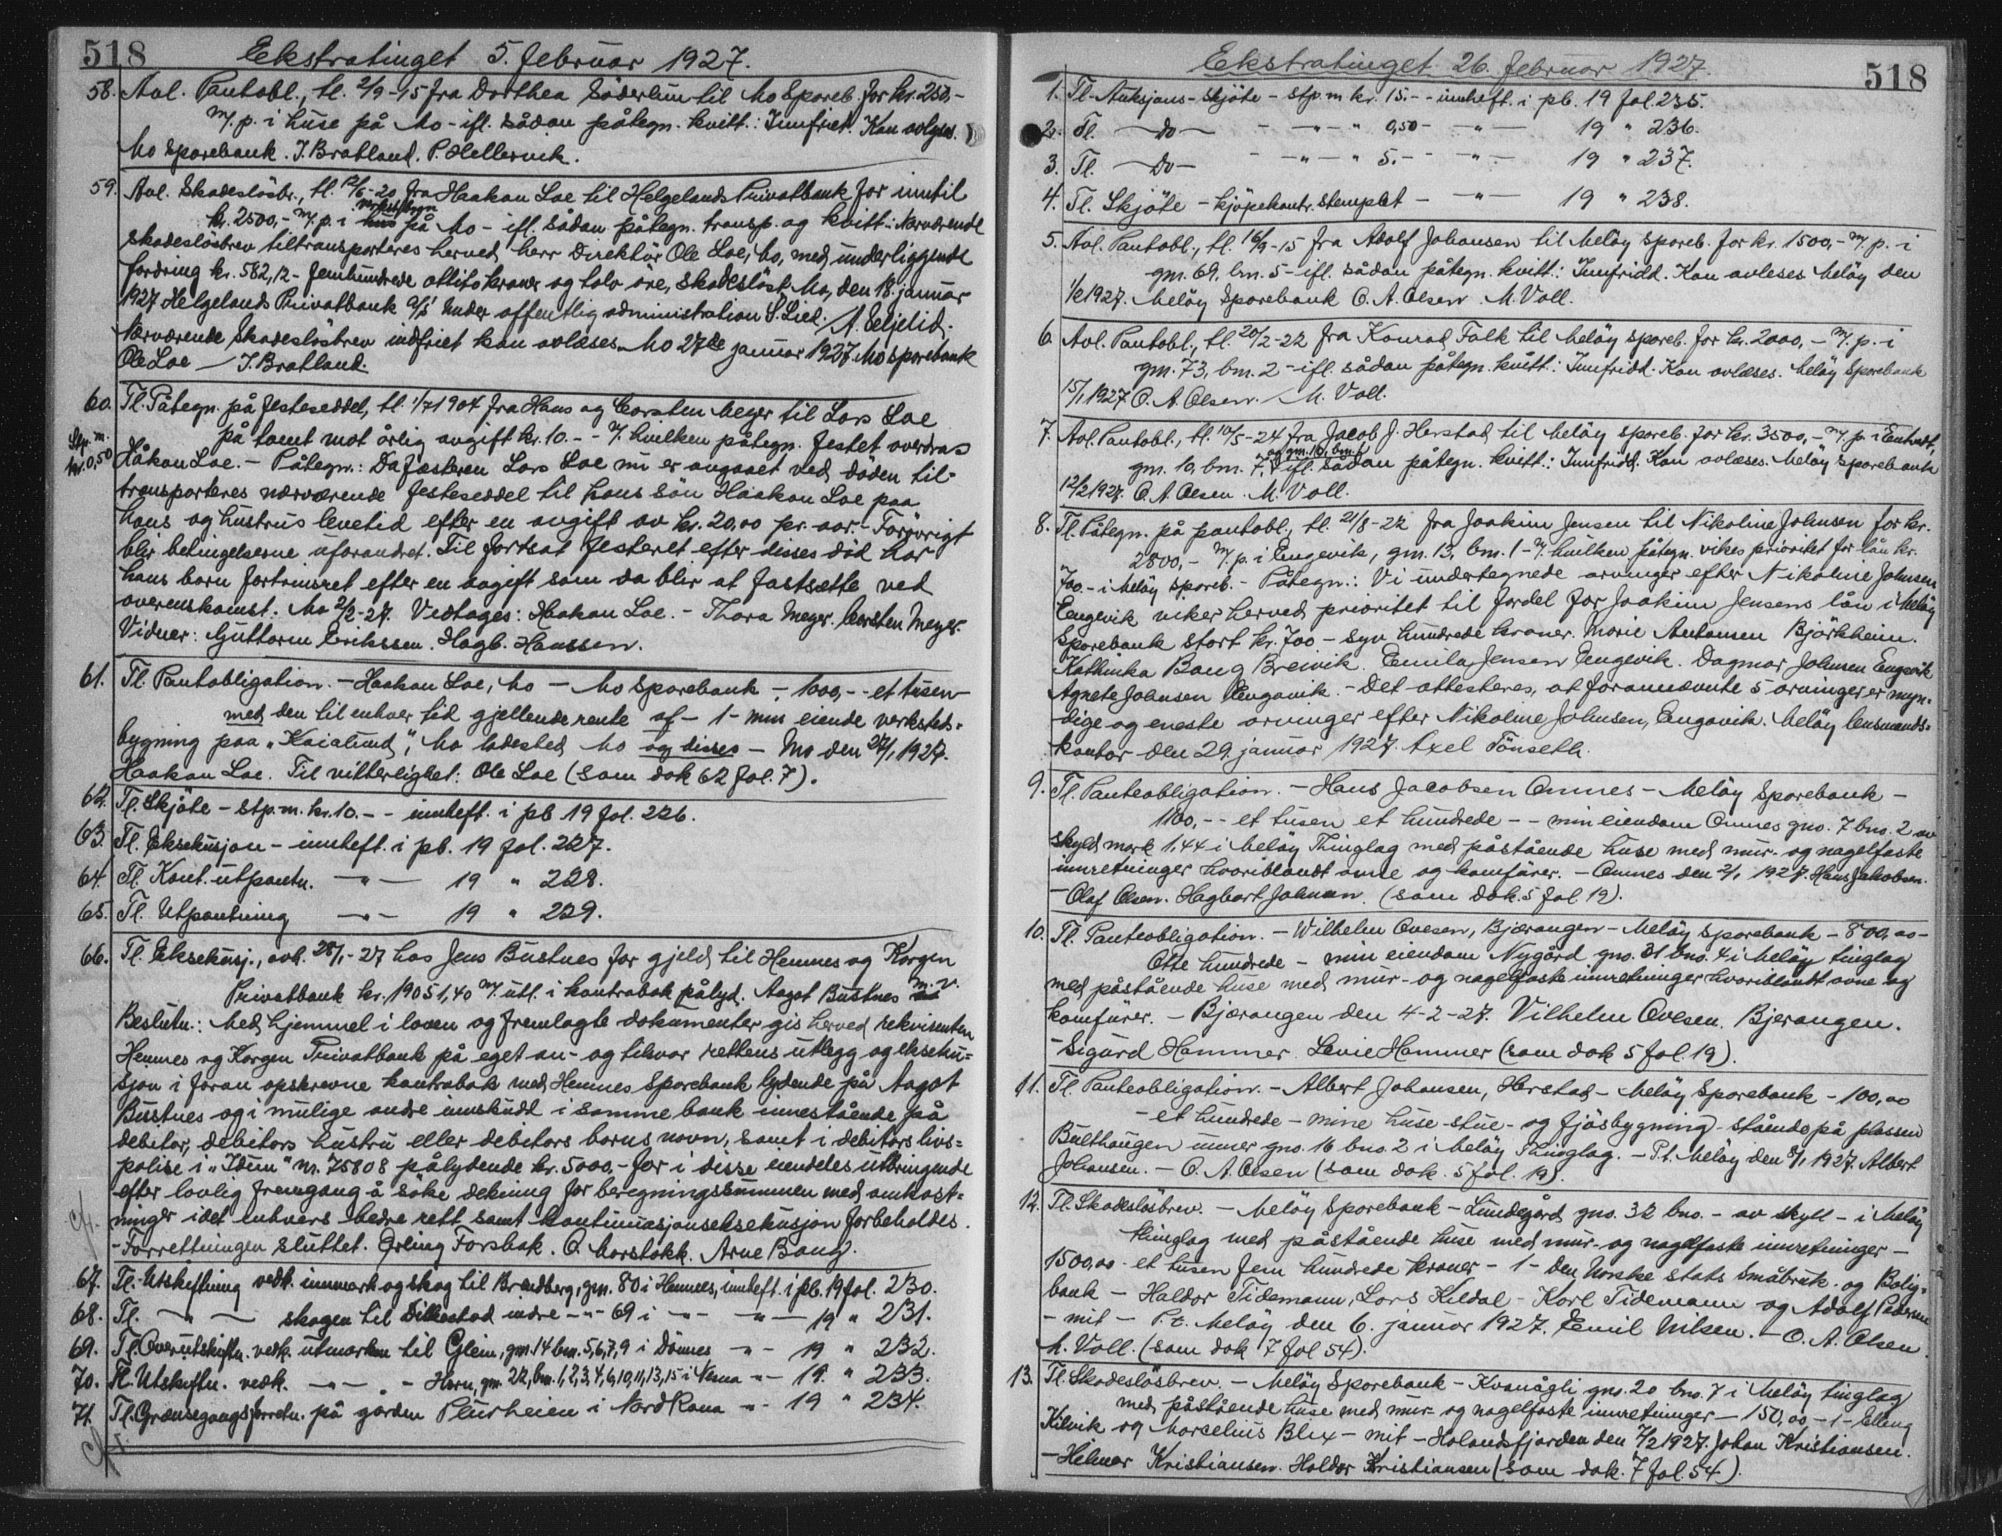 518
Ekstratinget 5. februar 1927.
58. Avl. Pantobl., tl. 2/9-15 fra Dorthea Söderlun til Mo Spareb. for kr. 250,-
m/. p. i huse på Mo - ifl. sådan påtegn. kvitt.: Innfriet. Kan avlyses.
Mo Sparebank. J. Bratland. P. Hellervik.
59. Avl. Skadeslösbr., tl. 12/6-20 fra Haakon Loe til Helgelands Privatbank for inntil
kr. 2500,- m/. p. i verkstedbygn på Mo - ifl. sådan påtegn. transp. og kvitt.: Nærværende
skadeslösbrev tiltransporteres herved herr Direktör Ole Loe, Mo, med underliggende
fordring kr. 582,12 - femhundrede ottito kroner og tolv öre, skadeslöst. Mo, den 18. januar
1927 Helgelands Privatbank A/S under offentlig administration S. Lied. A. Seljelid.
Nærværende Skadeslösbrev indfriet kan avlæses. Mo 27de januar 1927. Mo sparebank
Ole Loe J. Bratland.
60. Tl. Påtegn. på festeseddel, tl. 1/7 1904 fra Hans og Carsten Meyer til Lars Loe
Stp. m. kr. 0,50
på tomt mot årlig avgift kr. 10.- - m/. hvilken påtegn. festet overdras
Håkon Loe. - Påtegn.: Da fæsteren Lars Loe nu er avgaaet ved döden til-
transporteres nærværende festeseddel til hans sön Haakon Loe paa
hans og hustrus levetid efter en avgift av kr. 20,00 pr. aar. Forövrigt
blir betingelserne uforandret. Til fortsat festeret efter disses död har
hans barn fortrinsret efter en avgift som da blir at fastsætte ved
overenskomst. Mo 2/2-27. Vedtages: Haakon Loe. - Thora Meyer. Carsten Meyer.
Vidner: Guttorm Eriksen. Hagb. Hanssen.
61. Tl. Pantobligation. - Haakon Loe, Mo - Mo Sparebank - 1000,- - et tusen
med den til enhver tid gjellende rente af - 1 - min eiende verksteds-
bygning paa "Kaialund", Mo ladested Mo og disses - Mo den 24/1 1927.
Haakon Loe. Til vitterlighet: Ole Loe (som dok 62 fol. 7).
62. Tl. Skjöte - stp. m. kr. 10.- - innheft. i pb 19 fol. 226.
63. Tl. Eksekusjon - innheft. i pb. 19 fol. 227.
64. Tl. Kont. utpantn. - " - 19 " 228.
65. Tl. Utpantning - " - 19 " 229.
66. Tl. Eksekusj., avh. 28/1-27 hos Jens Bustnes for gjeld til Hemnes og Korgen
Privatbank kr. 19051,40 m/. utl. i kontrabok pålyd. Aagot Bustnes m. v.
Beslutn.: Med hjemmel i loven og fremlagte dokumenter gis herved rekvisenten
Hemnes og Korgen Privatbank på eget an- og tilsvar rettens utlegg og ekseku-
sjon i foran opskrevne kontrabok med Hemnes Sparebank lydende på Aagot
Bustnes og i mulige andre innskudd i samme bank innestående på
debitor, debitors hustru eller debitors barns navn, samt i debitors livs-
polise i "Idun" nr. 75808 pålydende kr. 5000,- for i disse eiendeles utbringende
efter lovlig fremgang å söke dekning for beregningssummen med omkost-
ninger idet enhvers bedre rett samt kontinuasjonseksekusjon forbeholdes.
- Forretningen sluttet. Erling Forsbak. O. Marstokk. Arne Bang.
67. Tl. Utskiftning vedk. innmark og skog til Brendberg, gnr. 80 i Hemnes, innheft. i pb. 19 fol. 230.
68. Tl. - " - skogen til Silkestad indre - " - 69 i - " - - " - 19 " 231.
69. Tl. Overutskiftn. vedk. utmarken til Glein, gnr. 14 bnr. 5,6,7,9 i Dönnes - " - 19 " 232.
70. Tl. Utskiftn. vedk. - " - " - Horn, gnr. 22, bnr. 1,2,3,4,6,10,11,13,15 i Nesna - " - 19 " 233.
71. Tl. Grænsegangsforretn. på garden Plurheien i Nord Rana - " - 19 " 234.
518
Ekstratinget 26. februar 1927.
1. Tl. Auksjons-skjöte - stp. m kr. 15.- - innheft. i pb. 19 fol. 235.
2. Tl. - do - - " - " 0,50 - - " - 19 " 236.
3. Tl. - Do - - " - " 5.- - " - 19 " 237.
4. Tl. Skjöte - kjöpekontr. stemplet - - " - 19 " 238.
5. Avl. Pantobl., tl. 16/9-15 fra Adolf Johansen til Melöy spareb. for kr. 1500,- m/. p. i
gnr. 69, bnr. 5 - ifl. sådan påtegn. kvitt.: Innfridd. Kan avleses Melöy den
1/2 1927. Melöy Sparebank O. A. Olsen. M. Voll.
6. Avl. Pantobl., tl. 20/2-22 fra Konrad Falk til Melöy spareb. for kr. 2000,- m/. p. i
gnr. 73, bnr. 2 - ifl. sådan påtegn. kvitt.: Innfridd. Kan avlæses. Melöy Sparebank
15/1 1927 O. A. Olsen. M. Voll.
7. Avl. Pantobl., tl. 10/5-24 fra Jacob J. Herstad til Melöy spareb. for kr. 3500,- m/. p. i Enhvdt,
gnr. 10, bnr. 7, og gnr. 16, bnr. ifl. sådan påtegn. kvitt.: Innfridd. Kan avlæses. Melöy Sparebank
12/2 1927. O. A. Olsen. M. Voll.
8. Tl. Påtegn. på pantobl., tl. 21/8-22 fra Joakim Jensen til Nikoline Johnsen for kr.
2800,- m/. p. i Engevik, gnr. 13, bnr. 1 - m/. hvilken påtegn. vikes prioritet for lån kr.
700.- i Melöy spareb. - Påtegn.: Vi undertegnede arvinger efter Nikoline Johnsen
Engevik viker herved prioritet til fordel for Joakim Jensens lån i Melöy
Sparebank stort kr. 700 - syv hundrede kroner. Marie Antonsen Björkheim.
Kathinka Bang Breivik. Emila Jensen Engevik. Dagmar Johnsen Engevik
Agnete Johnsen Engavik. - Det attesteres, at forannævnte 5 arvinger er myn-
dige og eneste arvinger efter Nikoline Johnsen, Engavik. Melöy lensmands-
kontor den 29. januar 1927. Axel Tönseth.
9. Tl. Panteobligation. - Hans Jacobsen Ornnes - Melöy Sparebank -
1100,- - et tusen et hundrede - - min eiendom Ornnes gno. 7 bno. 2 av
skyld mark 1.44 i Melöy Thinglag med påstående huse med mur- og nagelfaste
innretninger hvoriblandt ovne og komfürer. - Ornnes den 2/1 1927. Hans Jakobsen.
- Olaf Olsen. Hagbart Johnsen. (som dok. 5 fol 19).
10. Tl. Panteobligation. - Wilhelm Ovesen, Bjærangen - Melöy Sparebank - 800,00 -
Otte hundrede - min eiendom Nygård gno. 31 bno. 4 i Melöy tinglag
med påstående huse med mur- og nagelfaste innretninger hvoriblandt ovne og
komfürer. - Bjærangen den 4-2-27. Vilhelm Ovesen. Bjerangen.
- Sigurd Hammer. Levie Hammer (som dok 5 fol. 19).
11. Tl. Panteobligation. - Albert Johansen, Herstad - Melöy Sparebank - 100,00
- et hundrede - mine huse stue- og fjösbygning - stående på plassen
Bulthaugen unner gno. 16 bno. 2 i Melöy Thinglag. - Pt. Melöy den 8/1 1927. Albert
Johansen. - O. A. Olsen (som dok. 5 fol. 19).
12. Tl. Skadeslösbrev. - Melöy Sparebank - Lundegård gno. 32 bno. - av skyll - i Melöy
thinglag med påstående huse med mur- og nagelfaste innretninger -
1500,00 - et tusen fem hundrede kroner - 1 - den Norske stats Småbruk- og Bolig-
bank - Haldor Tidemann, Lars Kildal - Karl Tidemann og Adolf Pedersen
- mit - P.t. Melöy den 6. januar 1927. Emil Nilsen. - O. A. Olsen
M. Voll. (som dok 7 fol 54).
13. Tl. Skadeslösbrev. - Melöy Sparebank - Kvanågli gno. 20 bno. 7 i Melöy tinglag
med påstående huse med mur- og nagelfaste innretninger - 150,00 - 1 - Elling
Kilvik og Marcelius Blix - mit - Holandsfjorden den 7/2 1927. Johan Kristiansen.
- Helmer Kristiansen. Haldor Kristiansen (som dok. 7 fol. 54).